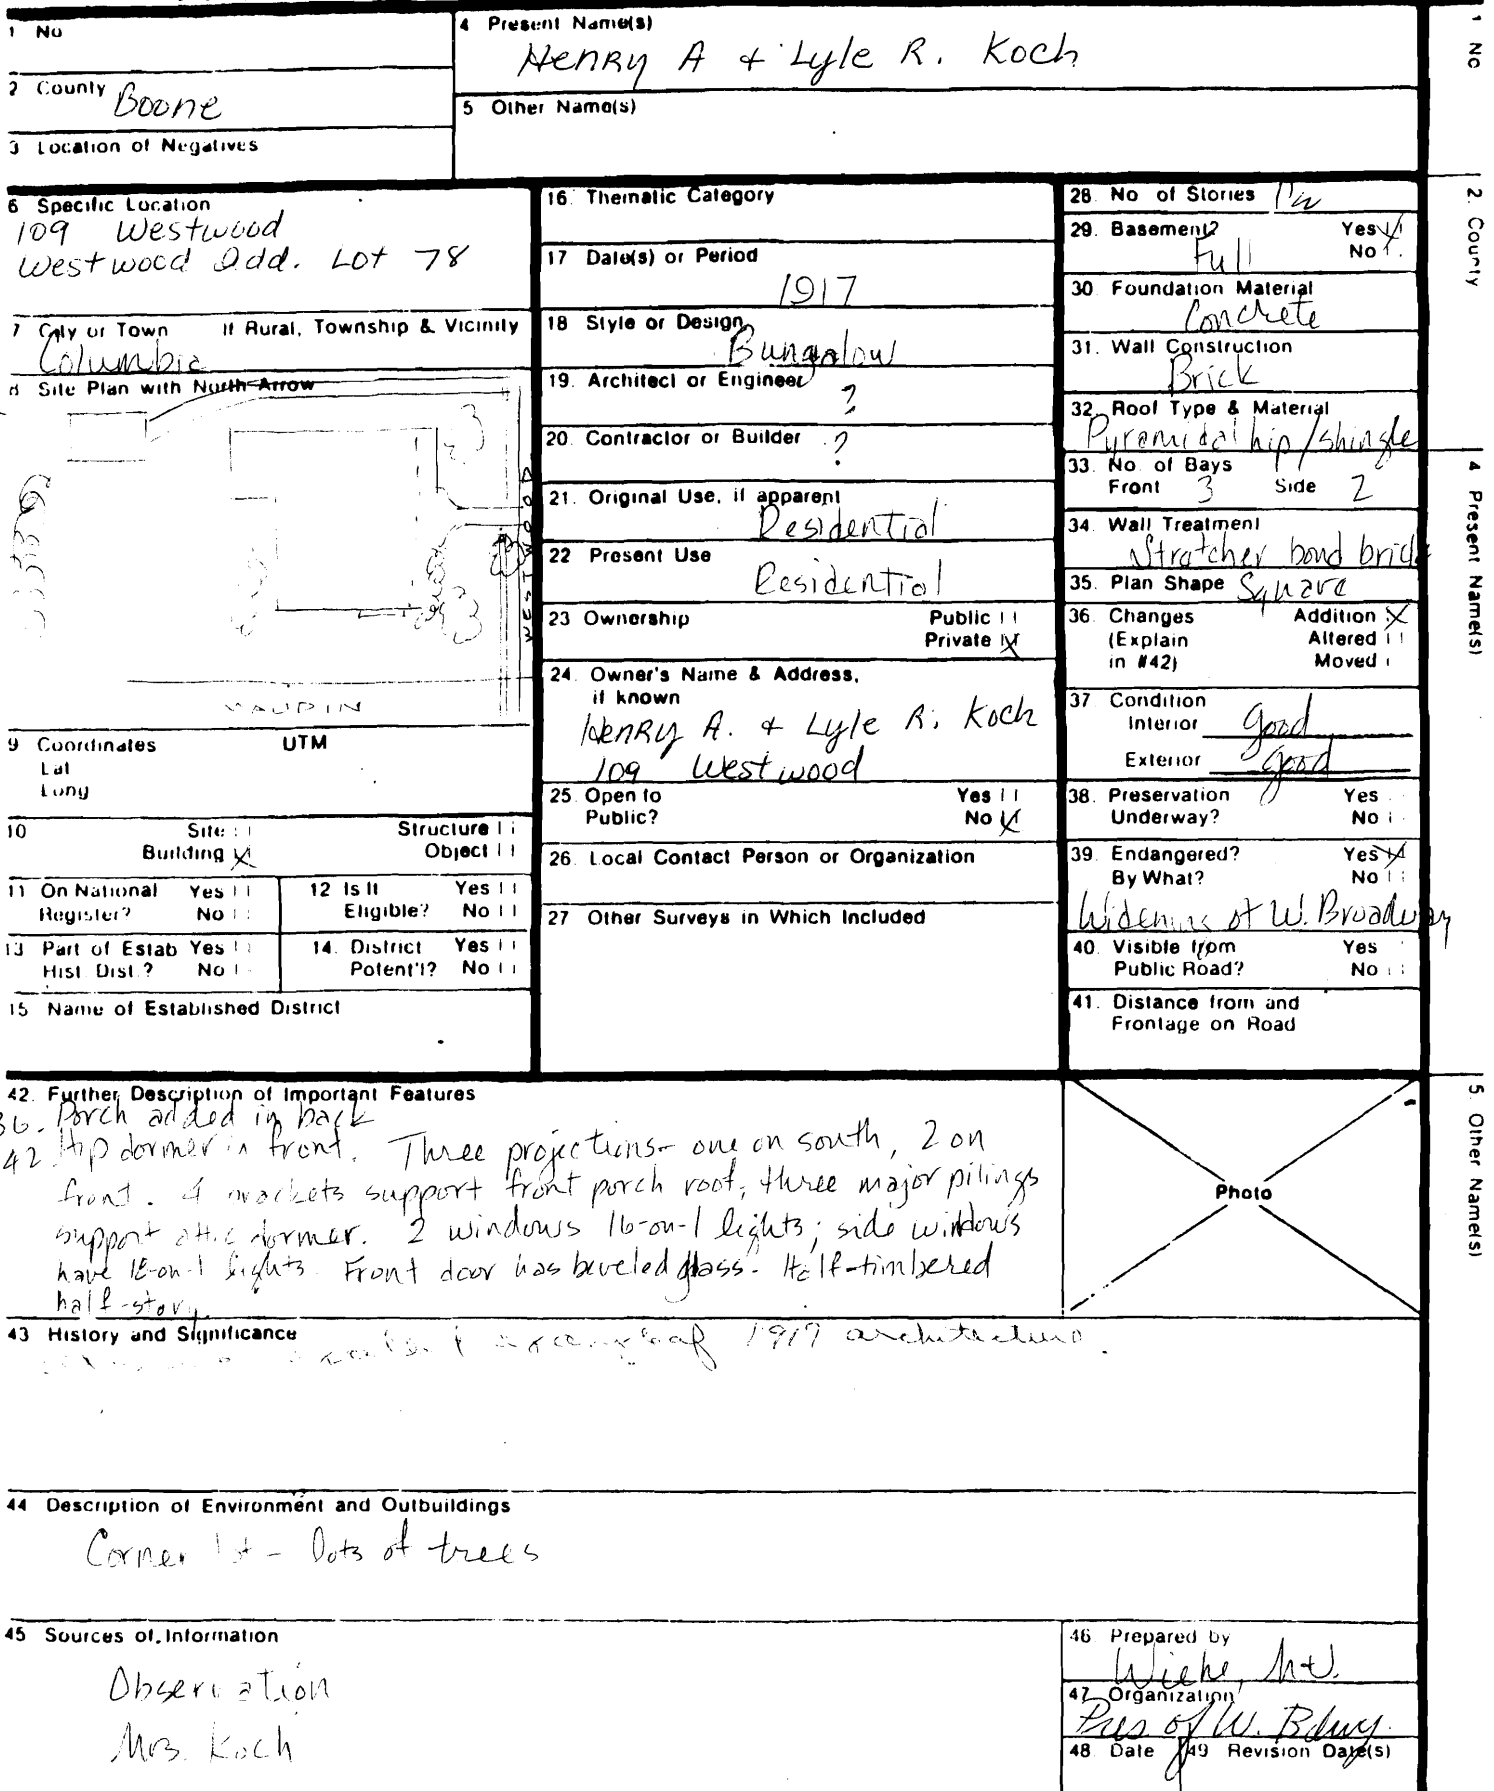 1 No
4 Present Name(s)
Henry A + Lyle R. Koch
2 County
Boone
5 Other Name(s)
3 Location of Negatives
6 Specific Location
109 Westwood
Westwood Add. Lot 78
7 City or Town If Rural, Township & Vicinity
Columbia
8 Site Plan with North Arrow
WESTWOOD
MAUPIN
9 Coordinates UTM
Lat
Long
10 Site
Structure
Building X
Object
11 On National Register? Yes No
12 Is It Eligible? Yes No
13 Part of Estab Hist. Dist.? Yes No
14. District Potent'l? Yes No
15 Name of Established District
16. Thematic Category
17 Date(s) or Period
1917
18 Style or Design
Bungalow
19. Architect or Engineer
?
20. Contractor or Builder
?
21. Original Use, if apparent
Residential
22 Present Use
Residential
23 Ownership Public
Private X
24. Owner's Name & Address,
if known
Henry A. + Lyle R. Koch
109 Westwood
25. Open to Public? Yes
No X
26. Local Contact Person or Organization
27 Other Surveys in Which Included
28. No of Stories
29. Basement? Yes X
Full No
30 Foundation Material
Concrete
31. Wall Construction
Brick
32. Roof Type & Material
Pyramidal hip/shingle
33. No. of Bays
Front 3 Side 2
34. Wall Treatment
Stratcher bond brick
35. Plan Shape Square
36. Changes Addition X
(Explain Altered
in #42) Moved
37. Condition
Interior Good
Exterior Good
38. Preservation Yes
Underway? No
39. Endangered? Yes X
By What? No
Widening of W. Broadway
40. Visible from Yes
Public Road? No
41. Distance from and
Frontage on Road
42. Further Description of Important Features
36. Porch added in back
42. Hip dormer in front. Three projections - one on south, 2 on
front. 4 brackets support front porch roof, three major pilings
support attic dormer. 2 windows 16-on-1 lights; side windows
have on-1 lights. Front door has beveled glass. Half-timbered
half-story.
Photo
43 History and Significance
1917 architecture.
44 Description of Environment and Outbuildings
Corner lot - lots of trees
45 Sources of Information
Observation
Mrs. Koch
46 Prepared by
47 Organization
Pres of W. Bdwy.
48 Date 49 Revision Date(s)
1 No
2. County
4 Present Name(s)
5. Other Name(s)